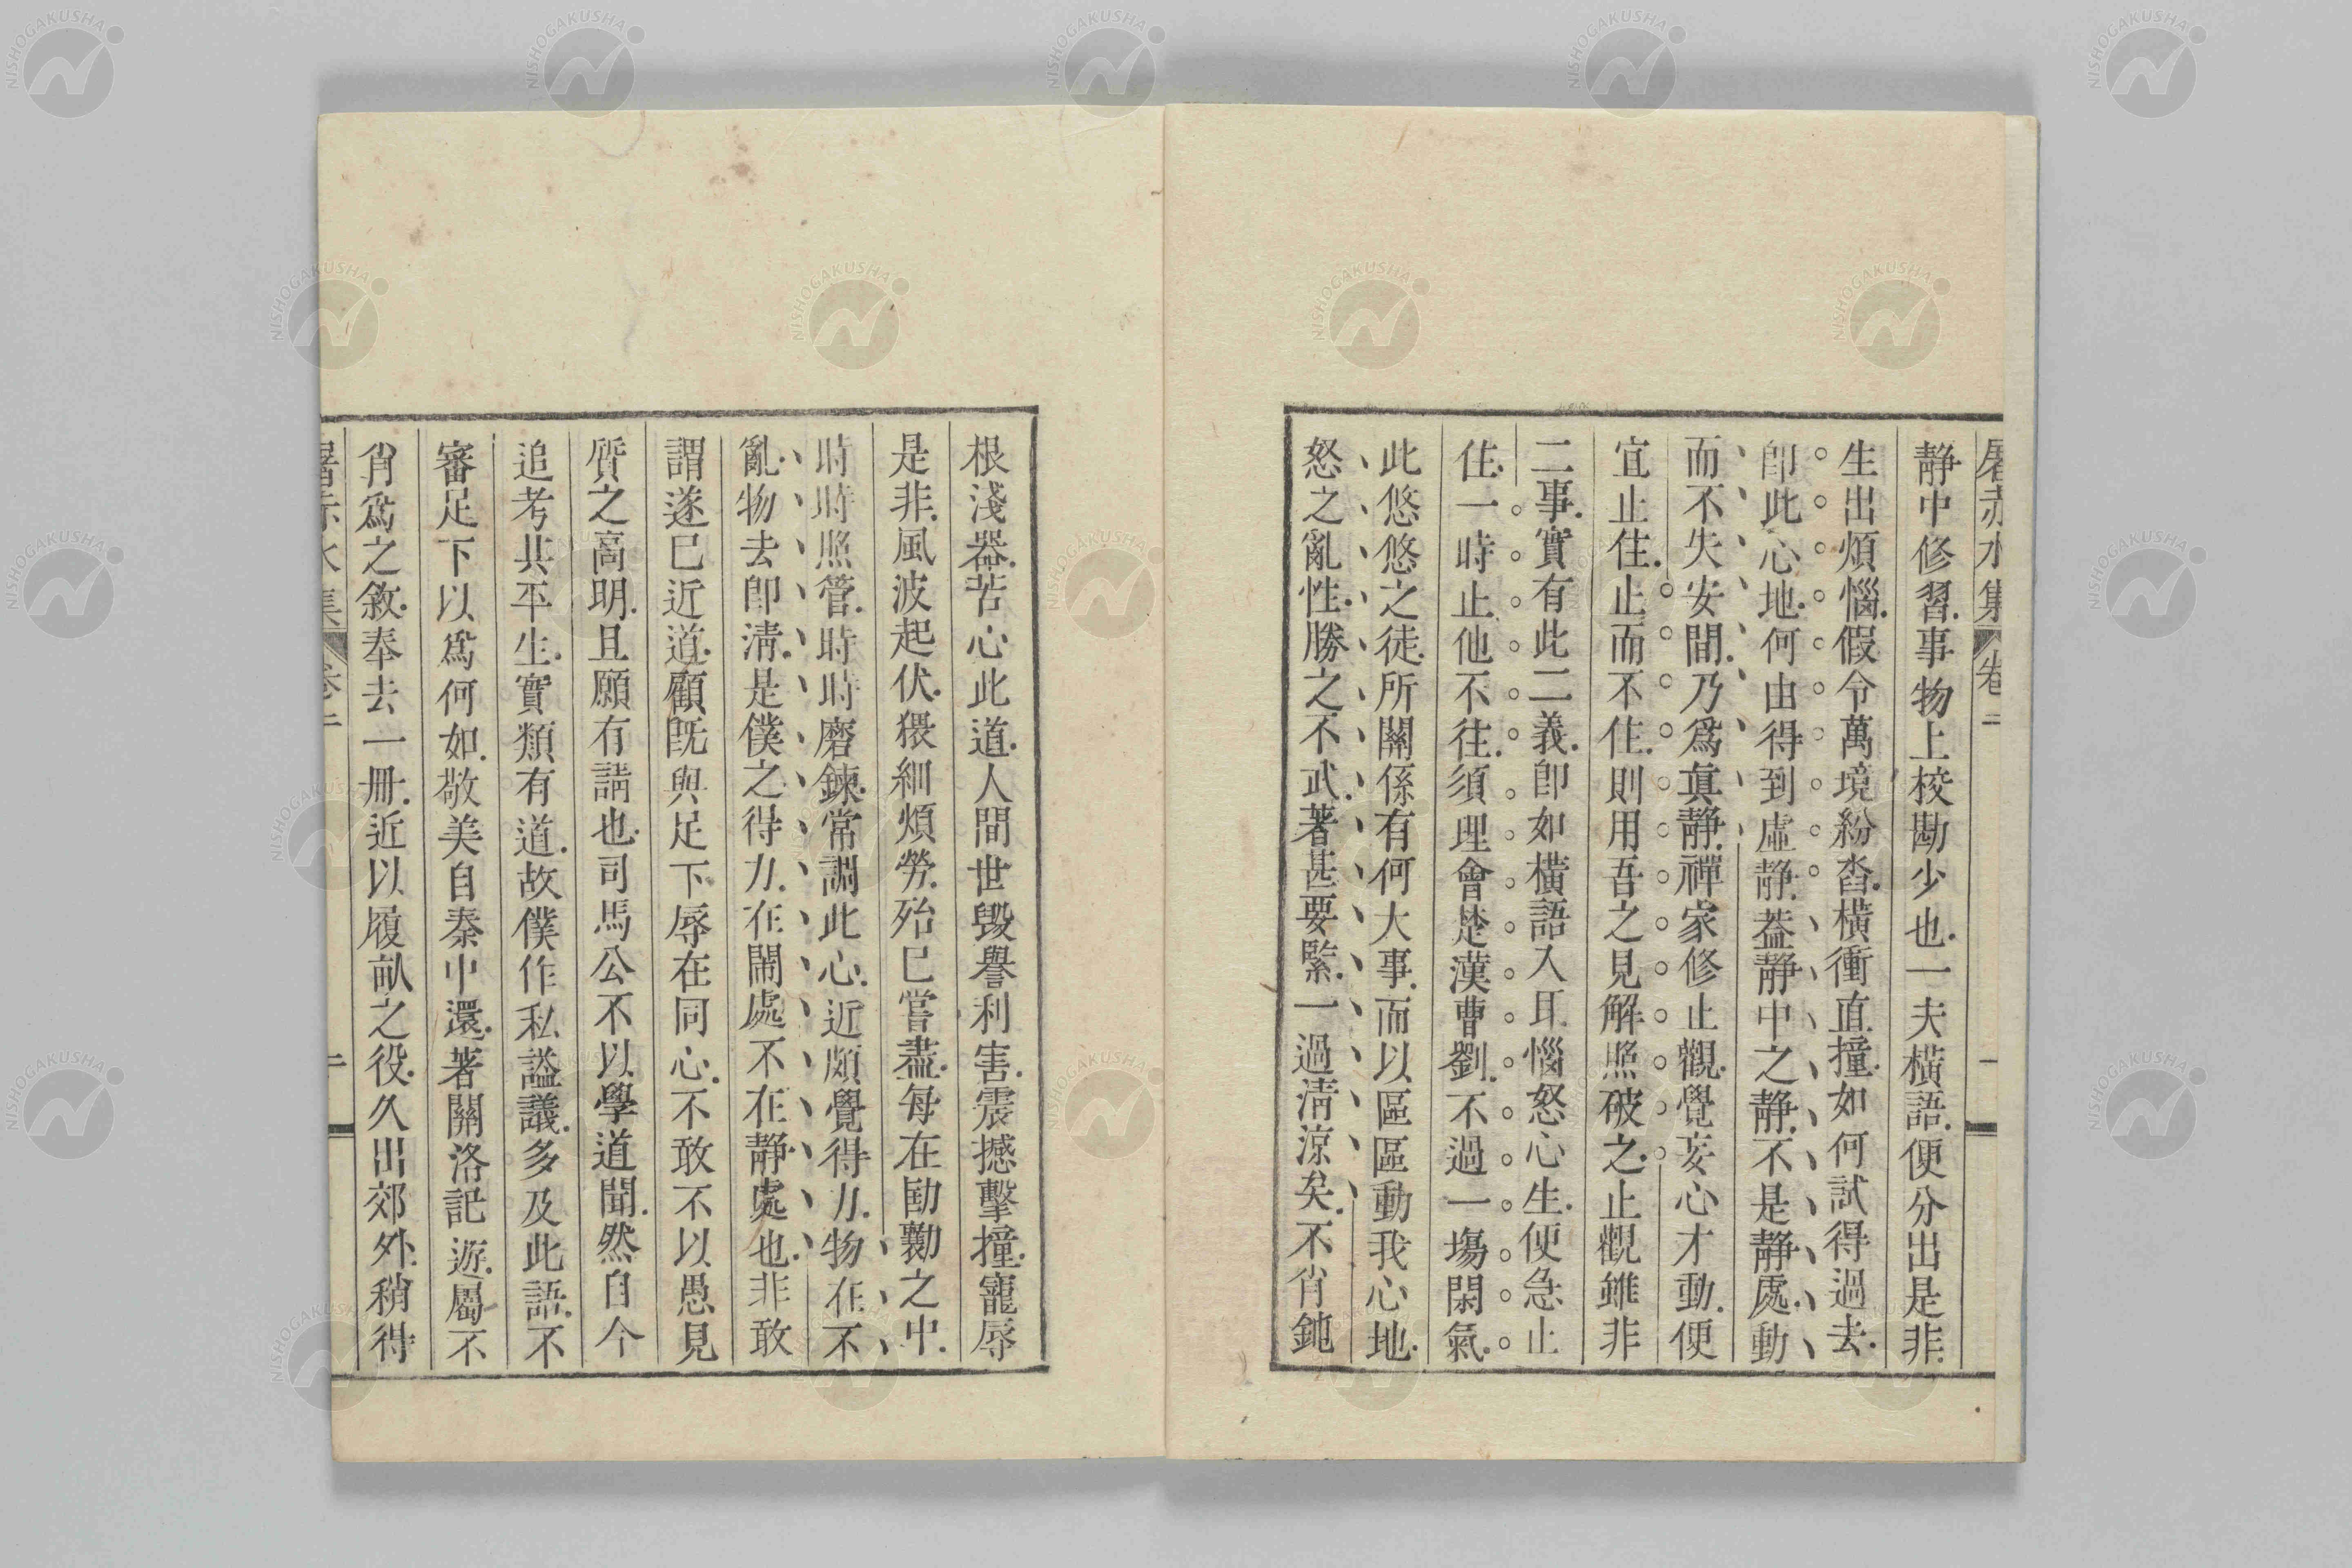 屠赤水集 卷二 一
靜中修習.事物上校勘少也.一夫橫語.便分出是非.
生出煩惱.假令萬境紛沓.橫衝直撞.如何試得過去.
卽此心地.何由得到虛靜.葢靜中之靜.不是靜處.動
而不失安閒.乃爲眞靜.禪家修止觀.覺妄心才動.便
宜止住.止而不住.則用吾之見解照破之.止觀雖非
二事.實有此二義.卽如橫語入耳.惱怒心生.便急止
住.一時止他不往.須理會楚漢曹劉.不過一塲閑氣.
此悠悠之徒.所關係有何大事.而以區區動我心地.
怒之亂性.勝之不武.著甚要緊.一過淸涼矣.不肖鈍
根淺器.苦心此道.人間世毀譽利害.震撼擊撞.寵辱
是非.風波起伏.猥細煩勞.殆已嘗盡.每在劻勷之中.
時時照管.時時磨鍊.常調此心.近頗覺得力.物在不
亂.物去卽淸.是僕之得力.在鬧處不在靜處也.非敢
謂遂已近道.顧旣與足下辱在同心.不敢不以愚見
質之高明.且願有請也.司馬公不以學道聞.然自今
追考其平生.實類有道.故僕作私謚議.多及此語.不
審足下以爲何如.敬美自秦中還.著關洛記遊.屬不
肖爲之敘.奉去一冊.近以履畝之役.久出郊外.稍得
屠赤水集 卷二 二
NISHOGAKUSHA